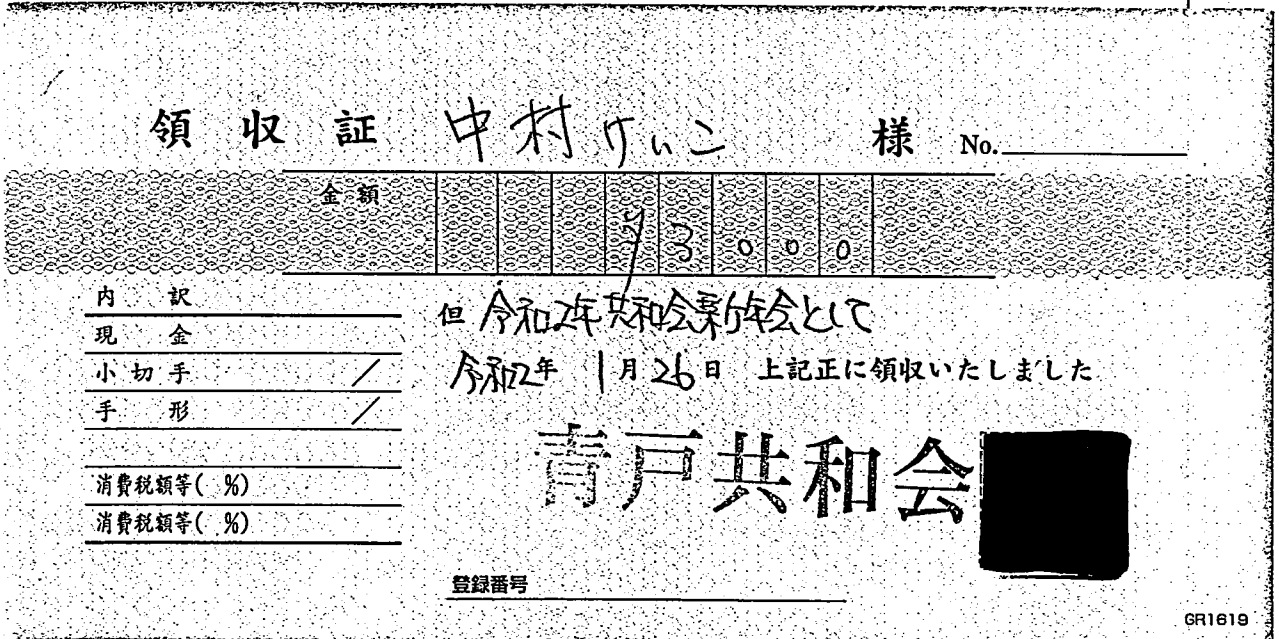 領収証 中村けいこ 様 No.
金額 ¥3000
内訳
現金
小切手 /
手形 /
消費税額等( %)
消費税額等( %)
但 令和2年共和会新年会として
令和2年 1月26日 上記正に領収いたしました
青戸共和会
登録番号
GR1619